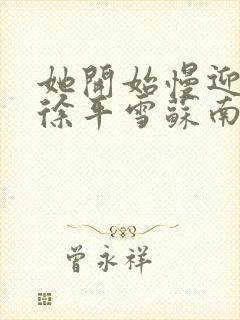 她開始慢迎
徐平雪蘇南
曾永祥